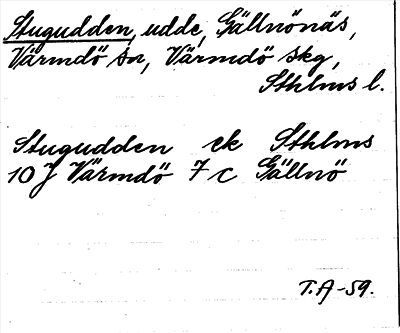 Stugudden, udde, Gällnönäs,
Värmdö sn, Värmdö skg,
Sthlms l.
Stugudden ek Sthlms
10 J Värmdö 7 c Gällnö
T.A-59.